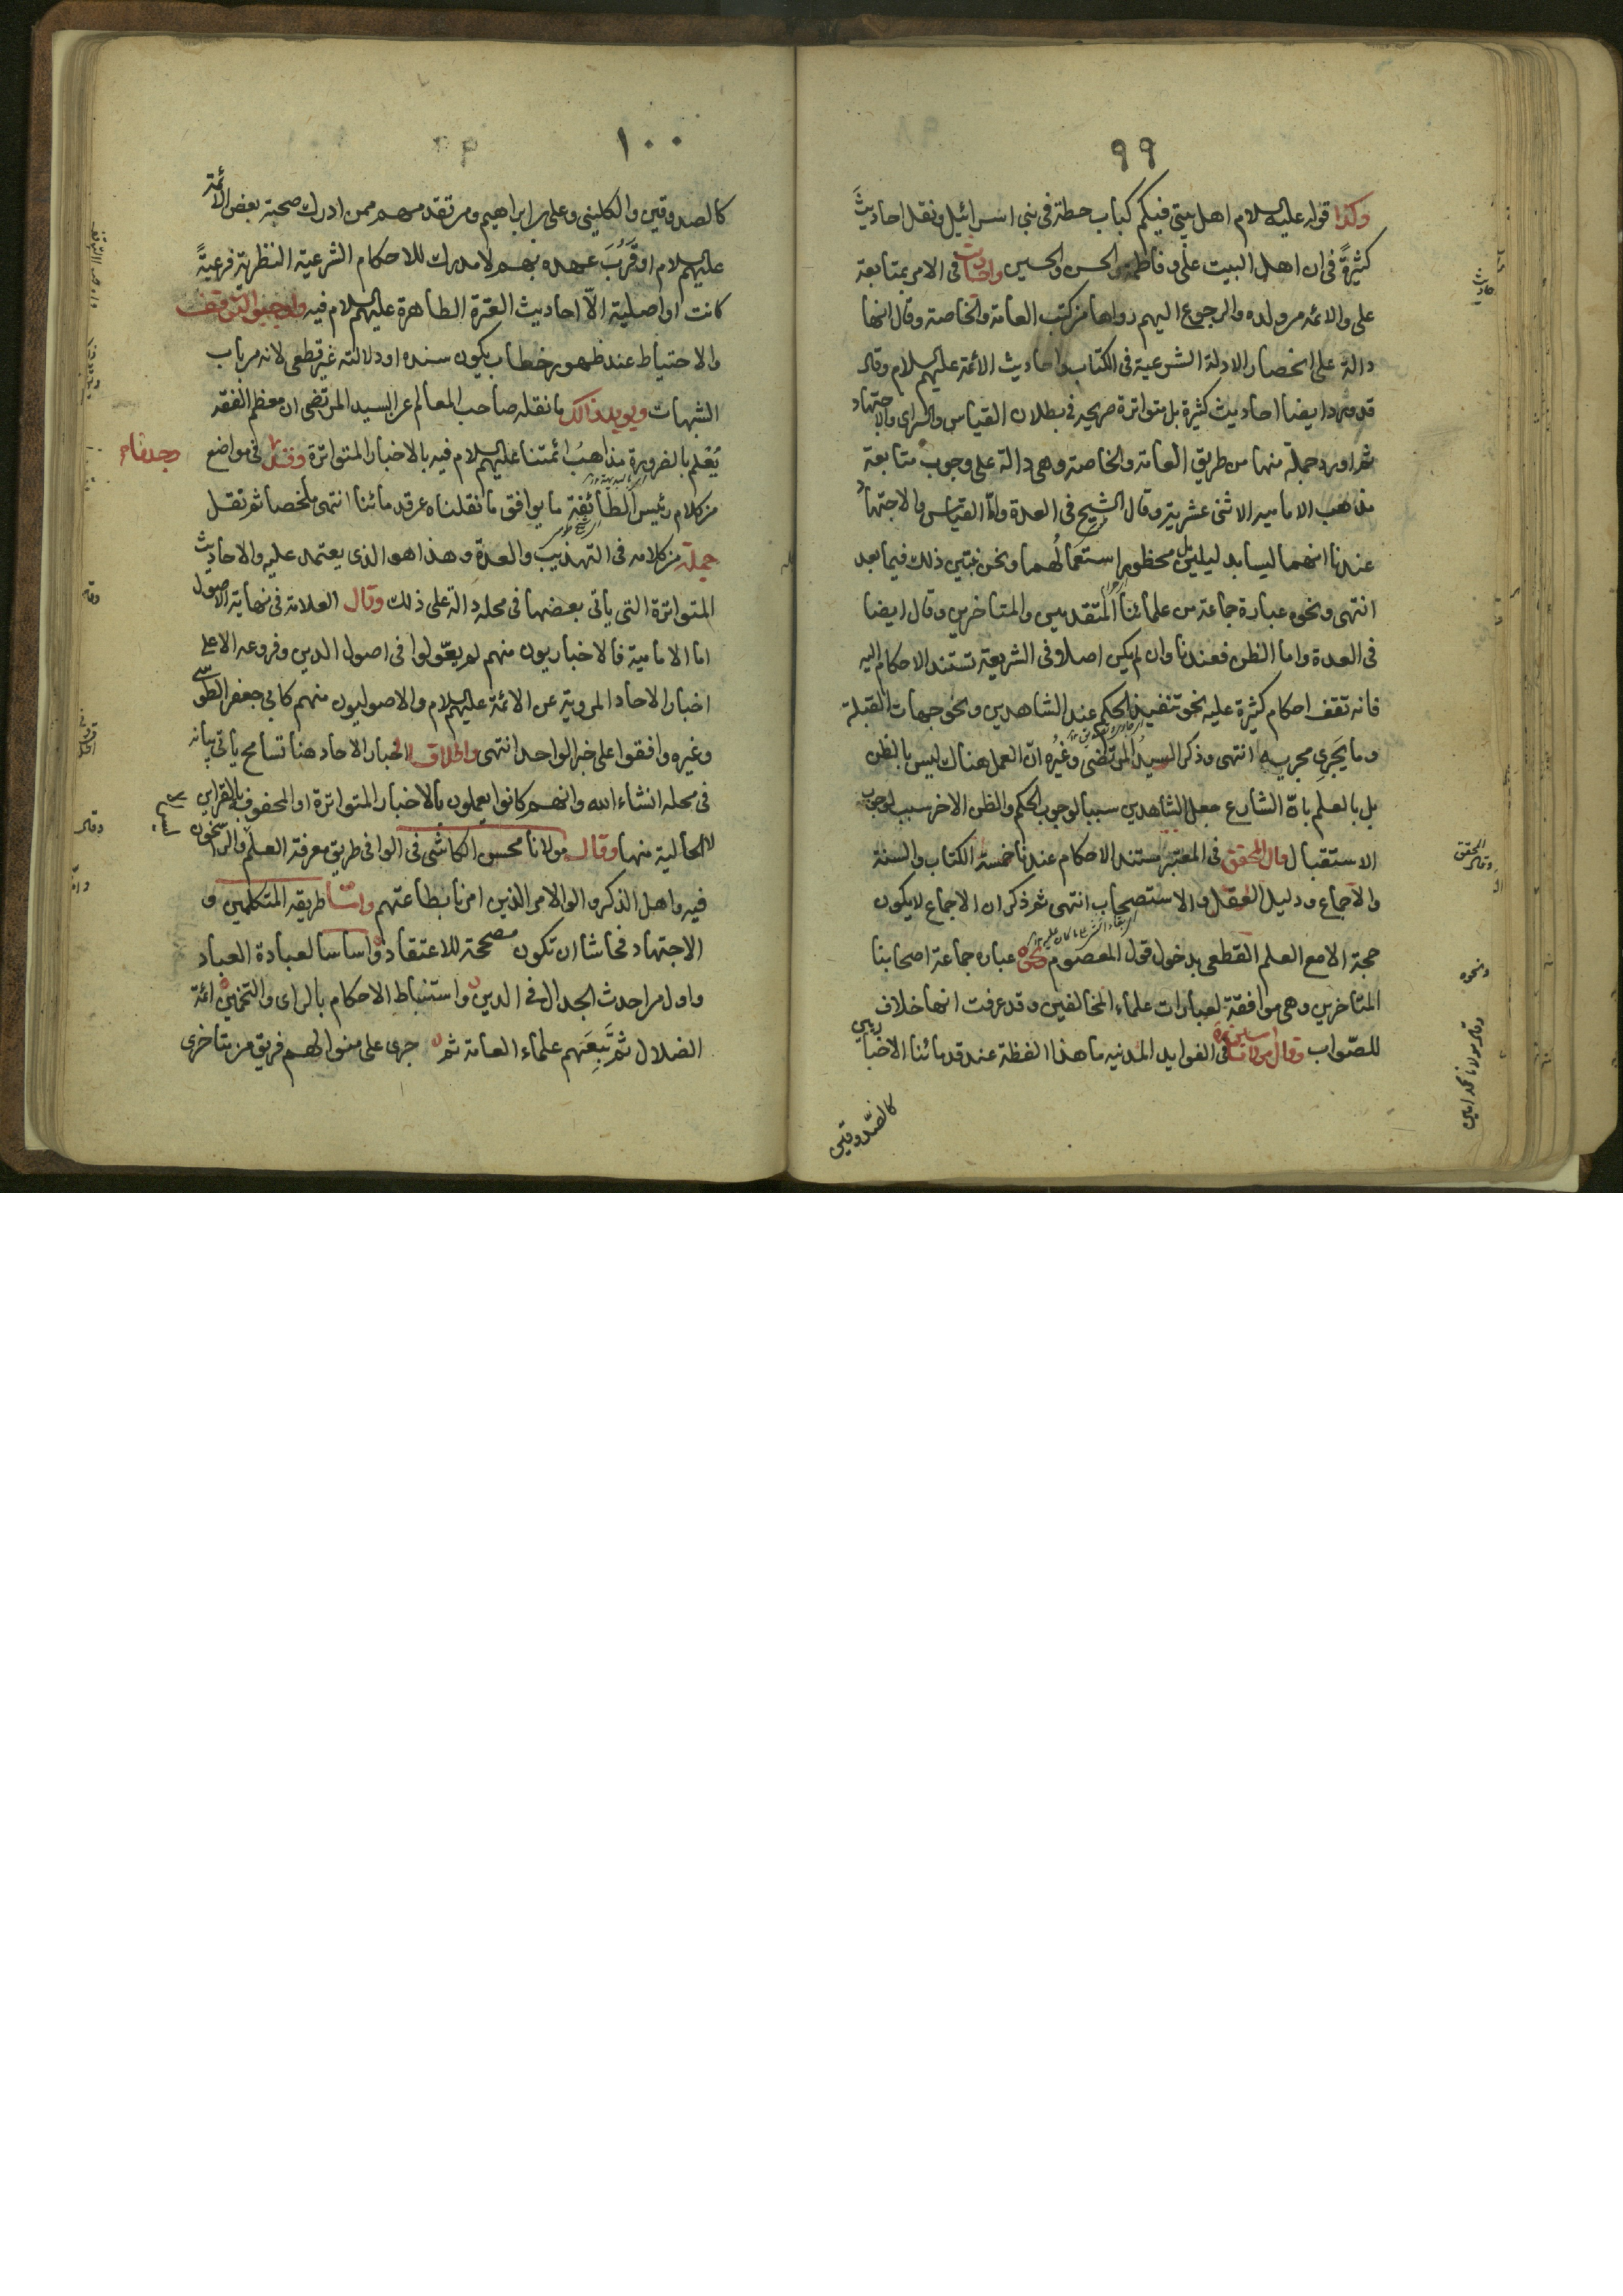 ٩٩
وكذا قوله عليه السلام اهل بيتي فيكم كباب حطة في بني اسرائيل ونقل احاديث
كثيرة في ان اهل البيت علي وفاطمة والحسن والحسين واحاديث في الامر بمتابعة
علي والائمة من ولده والرجوع اليهم رواها من كتب العامة والخاصة وقال انها
دالة على انحصار الادلة الشرعية في الكتاب واحاديث الائمة عليهم السلام وقال
قد ورد ايضا احاديث كثيرة بل متواترة صريحة في بطلان القياس والراى والاجتهاد
ثم اورد جملة منها من طريق العامة والخاصة وهي دالة على وجوب متابعة
مذهب الامامية الاثنى عشرية وقال الشيخ في العدة واما القياس والاجتهاد
عندنا انهما ليسا بدليلين بل محظور استعمالهما ونحن نبين ذلك فيما بعد
انتهى ونحوه عبارة جماعة من علمائنا المتقدمين والمتاخرين وقال ايضا
في العدة واما الظن فعندنا وان لم يكن اصلا في الشريعة تستند الاحكام اليه
فانه تقف احكام كثيرة عليه نحو تنفيذ الحكم عند الشاهدين ونحو جهات القبلة
وما يجري مجريه انتهى وذكر السيد المرتضى وغيره ان العمل هناك ليس بالظن
بل بالعلم بان الشارع جعل الشاهدين سببا لوجوب الحكم والظن الاخر سبب لوجوب
الاستقبال وقال المحقق في المعتبر مستند الاحكام عندنا خمسة الكتاب والسنة
والاجماع ودليل العقل والاستصحاب انتهى ثم ذكر ان الاجماع لا يكون
حجة الا مع العلم القطعى بدخول قول المعصوم ونحوه عباره جماعة اصحابنا
المتاخرين وهي موافقة لعبارات علماء المخالفين وقد عرفت انها خلاف
للصواب وقال مولانا في الفوايد المدنيه ما هذا لفظة عند قدمائنا الاخباريين
كالصدوقين
وقال المحقق
ونحوه
وقال مولانا محمد امين
١٠٠
كالصدوقين والكليني وعلي بن ابراهيم ومن تقدمهم ممن ادرك صحبة بعض الائمة
عليهم السلام او قرب عهده بهم لا مدرك للاحكام الشرعية النظرية فرعية
كانت او اصلية الا احاديث العترة الطاهرة عليهم السلام فيه واوجبوا التوقف
والاحتياط عند ظهور خطاب يكون سنده او دلالته غير قطعى لانه من باب
الشبهات ويويد ذالك ما نقله صاحب المعالم عن السيد المرتضى ان معظم الفقه
يعلم بالضرورة مذاهب ائمتنا عليهم السلام فيه بالاخبار المتواترة في مواضع
من كلام رئيس الطائفة ما يوافق ما نقلناه عن قدمائنا انتهى ملخصا ثم نقل
جملة من كلامه في التهذيب والعدة وهذا هو الذي يعتمد عليه والاحاديث
المتواترة التي ياتي بعضها في محله دالة على ذلك وقال العلامة في نهاية الاصول
اما الامامية فالاخباريون منهم لم يعولوا في اصول الدين وفروعه الا على
اخبار الاحاد المروية عن الائمة عليهم السلام والاصوليون منهم كابي جعفر الطوسي
وغيره وافقوا على خبر الواحد انتهى واطلاق اخبار الاحاد هنا تسامح ياتي بيانه
في محله انشاء الله وانهم كانوا يعملون بالاخبار المتواترة او المحفوفة بالقراين
لا الخالية منها وقال مولانا محسن الكاشي في الوافي طريق معرفة العلم والراسخون
فيه واهل الذكر والوا الامر الذين امرنا بطاعتهم واما طريقه المتكلمين و
الاجتهاد فحاشا ان تكون مصححة للاعتقاد واساسا لعبادة العباد
واول من احدث الجدال في الدين واستنباط الاحكام بالراى والتخمين ائمة
الضلال ثم تبعهم علماء العامة ثم جرى على منوالهم فريق من متاخرى